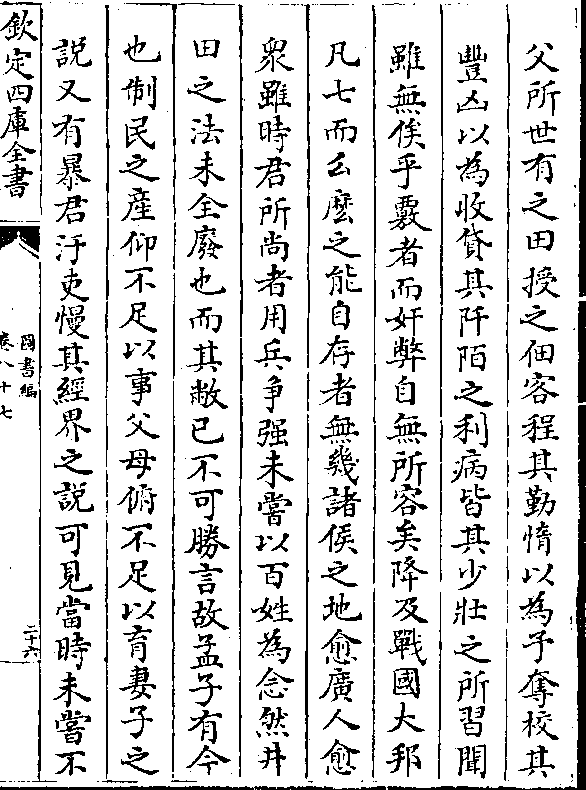 父所世有之田授之佃客程其勤惰以為予奪校其
豐凶以為收貸其阡陌之利病皆其少壯之所習聞
雖無俟乎覈者而奸弊自無所容矣降及戰國大邦
凡七而么麽之能自存者無幾諸侯之地愈廣人愈
衆雖時君所尚者用兵爭强未嘗以百姓為念然井
田之法未全廢也而其敝已不可勝言故孟子有今
也制民之産仰不足以事父母俯不足以育妻子之
説又有暴君汙吏慢其經界之説可見當時未嘗不
欽定四庫全書
圖書編
卷八十七
二十六